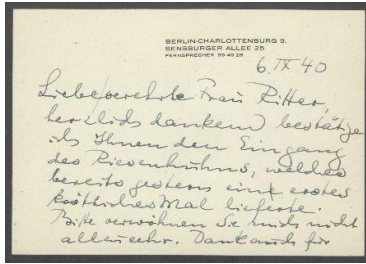 BERLIN-CHARLOTTENBURG 9.
SENSBURGER ALLEE 25
FERNSPRECHER 99 49 28
6. IX 40
Liebe verehrte Frau Ritter,
herzlich dankend bestätige
ich Ihnen den Eingang
des Riesenhuhns, welches
bereits gestern ein erstes
köstliches Mal lieferte.
Bitte verwöhnen Sie mich nicht
allzusehr. Dank auch für